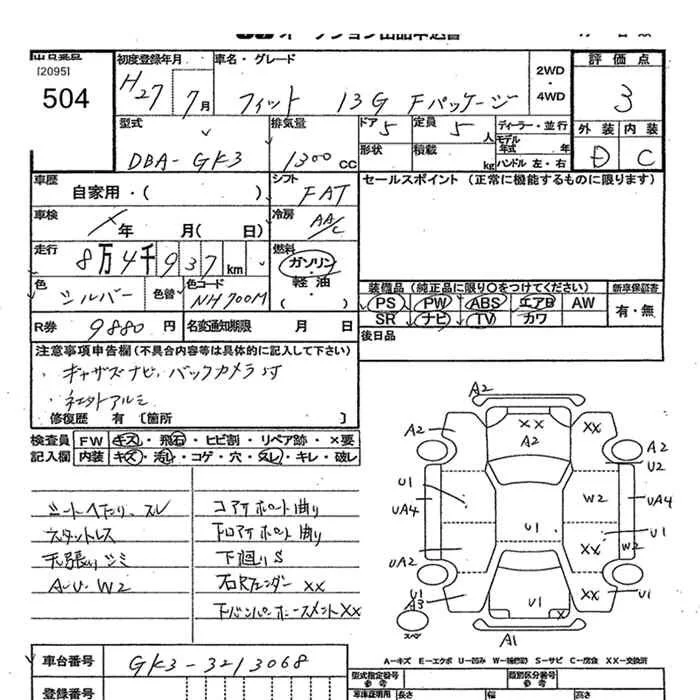 オークション出品申込書
出品番号
[2095]
504
初度登録年月
H27 7月
車名・グレード
フィット 13G Fパッケージ
2WD
・
4WD
評価点
3
外装 内装
D C
型式
DBA-GK3
排気量
1300CC
ドア 5
定員 5人
形状
積載 kg
ディーラー・並行
モデル年式 年
ハンドル 左・右
車歴
自家用・( )
シフト
FAT
セールスポイント (正常に機能するものに限ります)
車検
年 月(日)
冷房
AA/C
走行
8万4千937km
燃料
ガソリン
・
軽油
( )
色
シルバー
色替
色コード
NH700M
装備品(純正品に限り〇をつけてください)
新車保証書
PS PW ABS エアB AW
SR ナビ TV カワ
有・無
R券 9880円
名変通知期限 月 日
後日品
注意事項申告欄(不具合内容等は具体的に記入して下さい)
ギャザズナビ、バックカメラ
アルミ
修復歴 有〔箇所 〕
検査員
記入欄
FW キズ・飛石・ヒビ割・リペア跡・×要
内装 キズ・汚れ・コゲ・穴・スレ・キレ・破レ
シートヘタリ、スレ
スタットレス
天張りシミ
A-U-W2
コアサポート曲り
下回りS
XX
XX
A2
XX
A2
A2
XX
A2
U2
U1
UA4
W2
UA4
U1
U1
W2
UA2
XX
U1
A3
U1
X
XX
U1
スペ
A1
A-キズ E-エクボ U-凹み W-補修跡 S-サビ C-腐食 XX-交換済
車台番号
GK3-3213068
登録番号
型式指定番号
参考
類別区分番号
参考
車庫証明用
長さ
幅
高さ